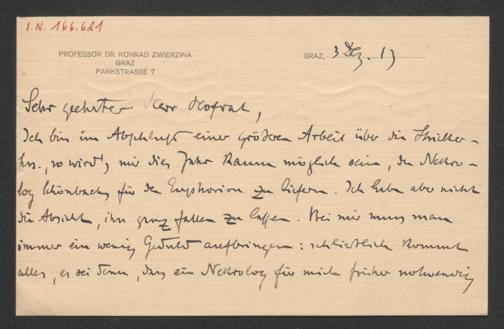 I.N. 166.621
PROFESSOR DR. KONRAD ZWIERZINA
GRAZ
PARKSTRASSE 7
GRAZ, 3 Dez. 13
Sehr geehrter Herr Hofrat,
Ich bin im Abschluß einer größeren Arbeit über die Stricker-
hss., so wird's mir dies Jahr kaum möglich sein, den Nekro-
log Schönbachs für den Euphorion zu liefern. Ich habe aber nicht
die Absicht, ihn ganz fallen zu lassen. Bei mir muss man
immer ein wenig Geduld aufbringen: schließlich kommt
alles, es sei denn, dass ein Nekrolog für mich früher notwendig